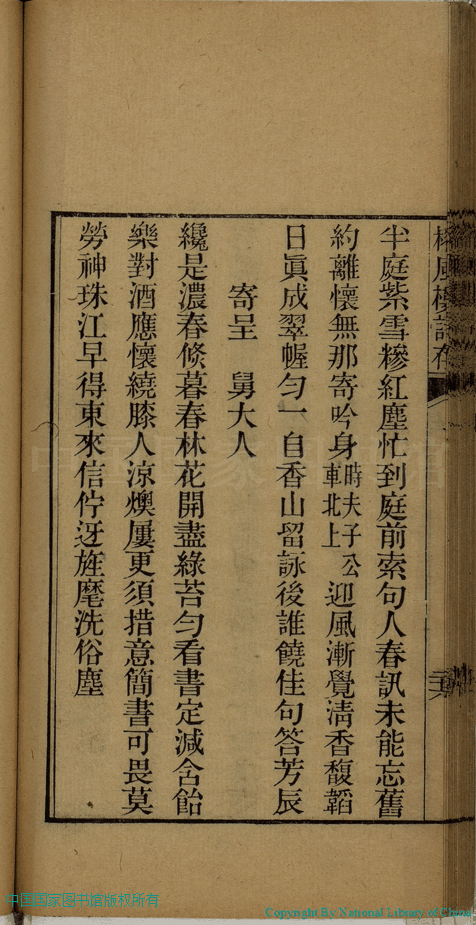 風樓詩存
半庭紫雪糝紅塵忙到庭前索句人春訊未能忘舊
約離懷無那寄吟身時夫子公車北上迎風漸覺清香馥韜
日眞成翠幄勻一自香山留詠後誰饒佳句答芳辰
寄呈　舅大人
纔是濃春倐暮春林花開盡綠苔勻看書定減含飴
樂對酒應懷繞膝人涼燠屢更須措意簡書可畏莫
勞神珠江早得東來信佇迓旌麾洗俗塵
中国国家图书馆版权所有
Copyright By National Library of China